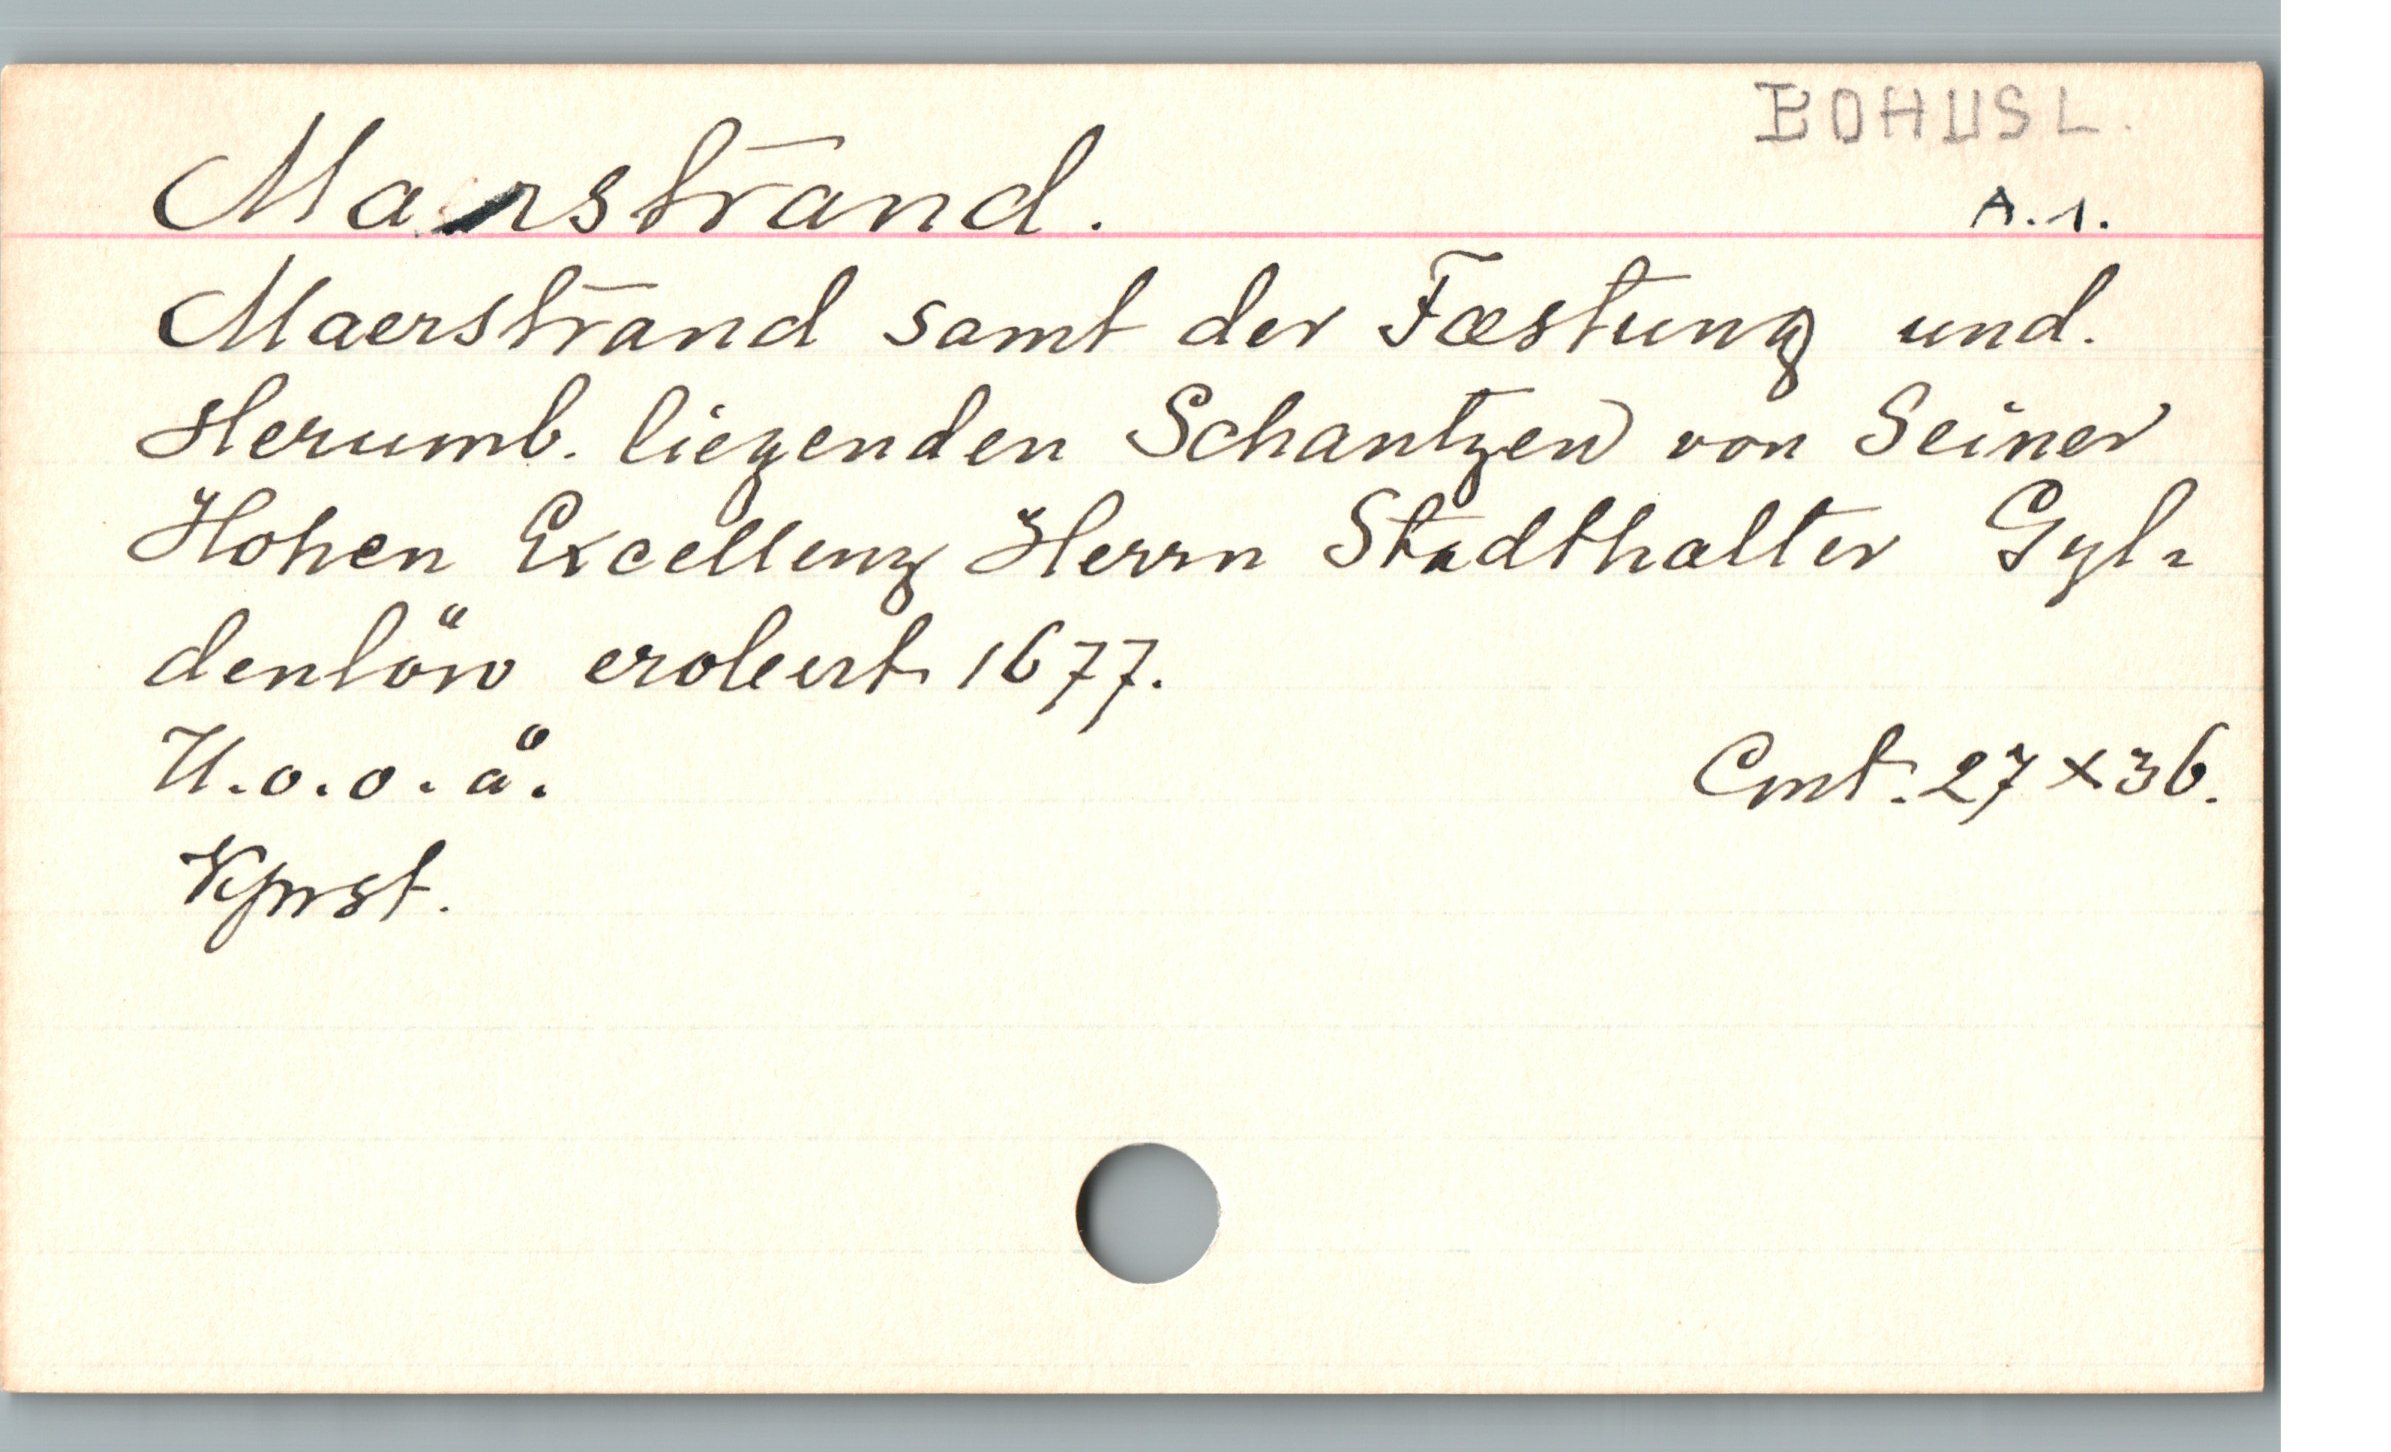 BOHUSL.
Marstrand.
A.1.
Maerstrand samt der Fæstung und.
Herumb. liegenden Schantzen von Seiner
Hohen Excellenz Herrn Stadthalter Gyl-
denlöw erobert 1677.
U.o.o.å.
Cmt. 27 x 36.
Kprst.